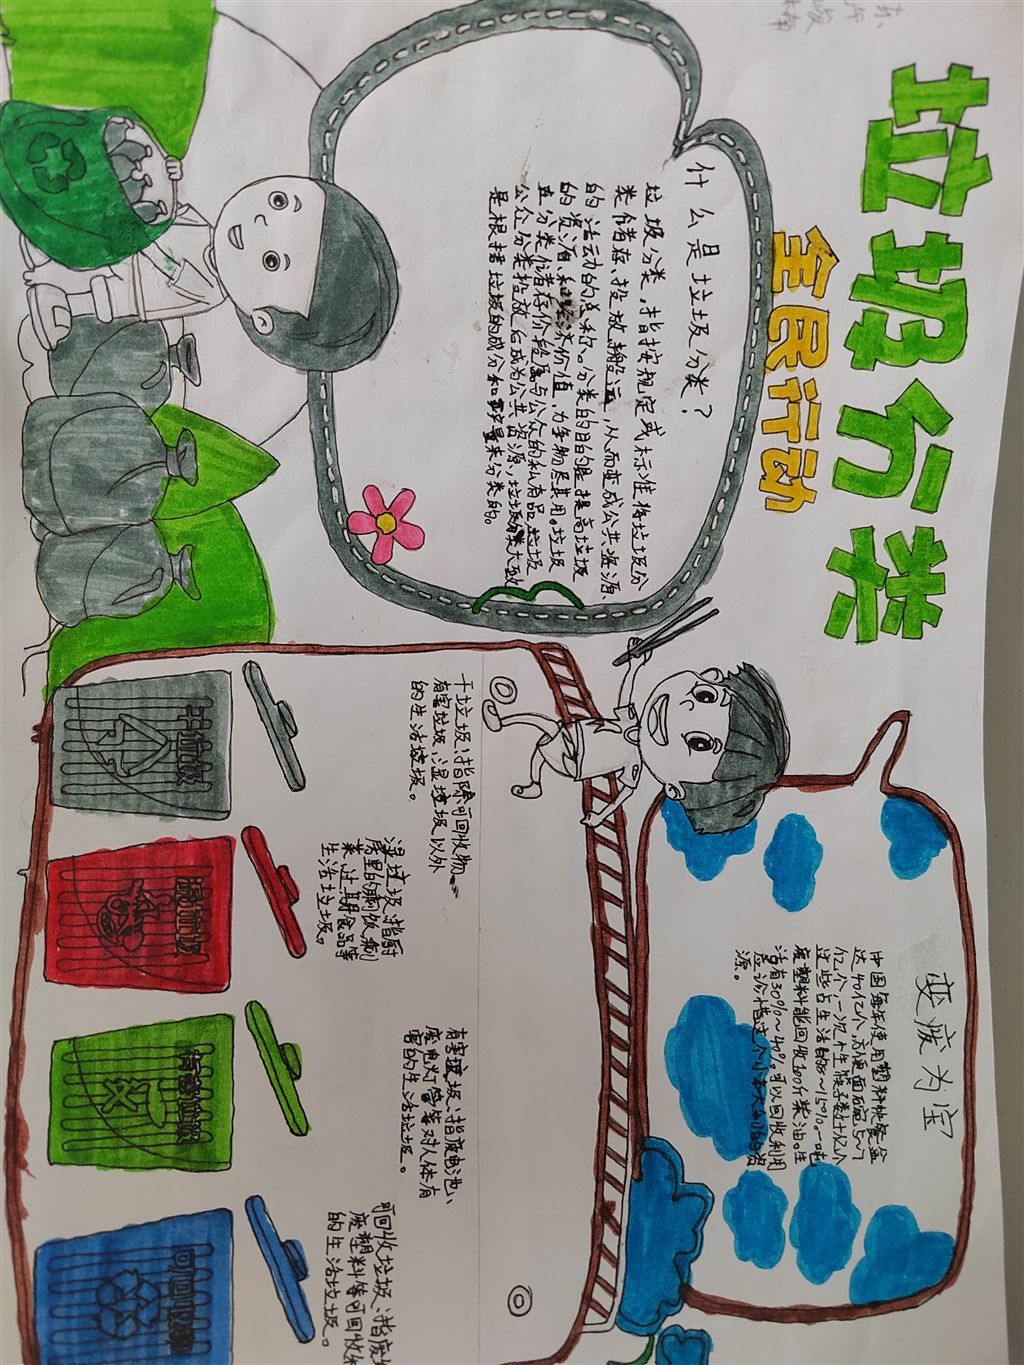 垃圾分类
全民行动
什么是垃圾分类?
垃圾分类,指按规定或标准将垃圾分
类储存、投放、搬运,从而变成公共资源
的活动的总称。分类的目的是提高垃圾
的资源和经济价值,力争物尽其用。垃圾
在分类储存阶段属与公众的私有品,垃圾
公众分类投放后成为公共资源,垃圾分类大致
是根据垃圾的成分和产量来分类的。
变废为宝
中国每年使用塑料快餐盒
达40亿个,方便面碗5~7
亿个,一次性筷子数十亿个
这些占生活的8~15%。一吨
废塑料能回收600斤柴油。生
活有30%~40%可以回收利用
应珍惜这个小本大利的资
源。
干垃圾:指除可回收物、
有害垃圾、湿垃圾以外
的生活垃圾。
湿垃圾:指厨
房里的剩饭剩
菜、过期食品等
生活垃圾。
有害垃圾:指废电池、
废电灯管等对人体有
害的生活垃圾。
可回收垃圾:指废
废塑料等可回收
的生活垃圾。
干垃圾
湿垃圾
有害垃圾
可回收